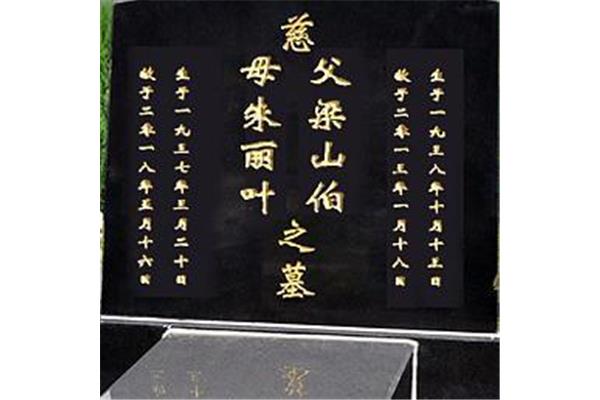 生于一九三八年十月十三日
故于二零一三年一月十八日
慈
父梁山伯
母朱丽叶
之墓
生于一九三七年三月二十日
故于二零一八年五月十六日